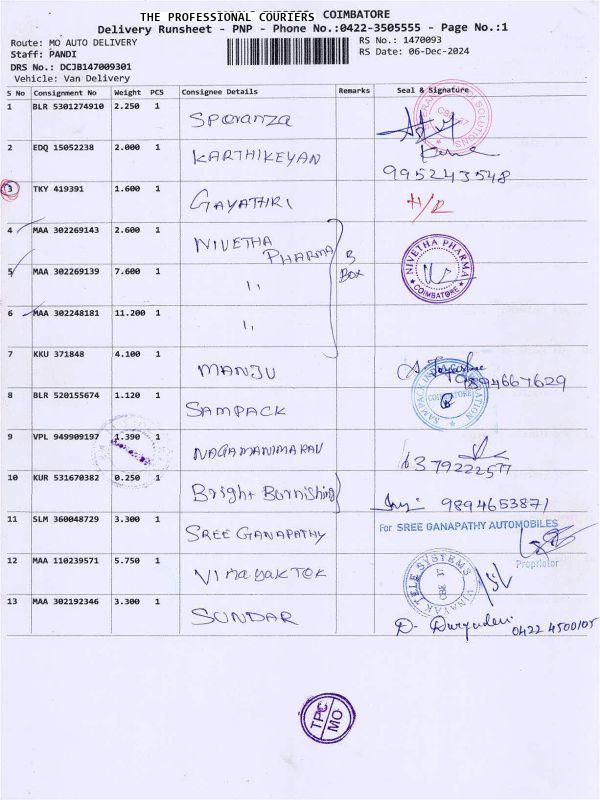 THE PROFESSIONAL COURIERS COIMBATORE
Delivery Runsheet - PNP - Phone No.:0422-3505555 - Page No.:1
Route: MO AUTO DELIVERY
RS No.: 1470093
Staff: PANDI
RS Date: 06-Dec-2024
DRS No.: DCJB147009301
Vehicle: Van Delivery
S No Consignment No Weight PCS Consignee Details Remarks Seal & Signature
1 BLR 5301274910 2.250 1 Speranza
2 EDQ 15052238 2.000 1 KARTHIKEYAN
995243548
3 TKY 419391 1.600 1 GAYATHRI
4 MAA 302269143 2.600 1 NIVETHA PHARMA 3 Box NIVETHA PHARMA COIMBATORE
5 MAA 302269139 7.600 1 ,,
6 MAA 302248181 11.200 1 ,,
7 KKU 371848 4.100 1 MANJU
9894667629
8 BLR 520155674 1.120 1 SAMPACK
9 VPL 949909197 1.390 1 NAGAMANIMARAN 6379222577
10 KUR 531670382 0.250 1 Bright Burnishing 9894653871
11 SLM 360048729 3.300 1 SREE GANAPATHY
For SREE GANAPATHY AUTOMOBILES
Proprietor
12 MAA 110239571 5.750 1 VINAYAK TEK VINAYAK TELE SYSTEMS
13 MAA 302192346 3.300 1 SUNDAR
0422 4500105
TPC
MO